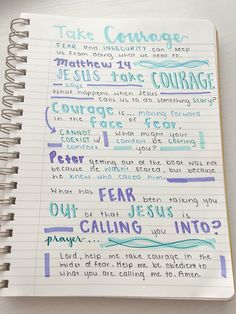 Take Courage
FEAR and INSECURITY can keep
us from doing what we need to...
Matthew 14
JESUS says take COURAGE
What happens when Jesus
calls us to do something scary?
Courage is... moving forward
in the face of fear.
CANNOT
COEXIST w/
comfort
what might your
comfort be costing
you?
Peter getting out of the boat was not
because he wasn't scared, but because
he knew who called him.
What has FEAR been talking you
OUT of that JESUS is
CALLING you INTO?
prayer...
Lord, help me take courage in the
midst of fear. Help me be obedient to
what you are calling me to. Amen